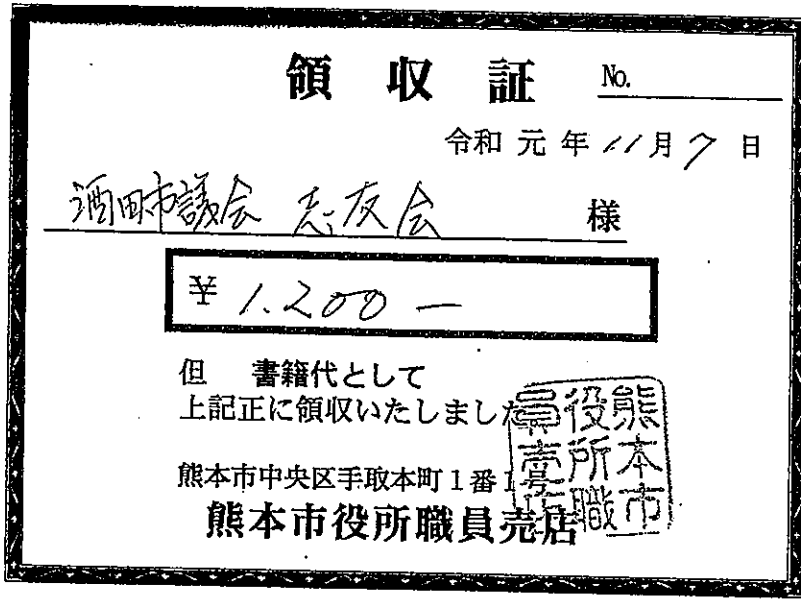 領収証 No.
令和元年11月7日
酒田市議会 志友会 様
¥1.200-
但 書籍代として
上記正に領収いたしました
熊本市中央区手取本町1番1号
熊本市役所職員売店
熊本市役所職員売店